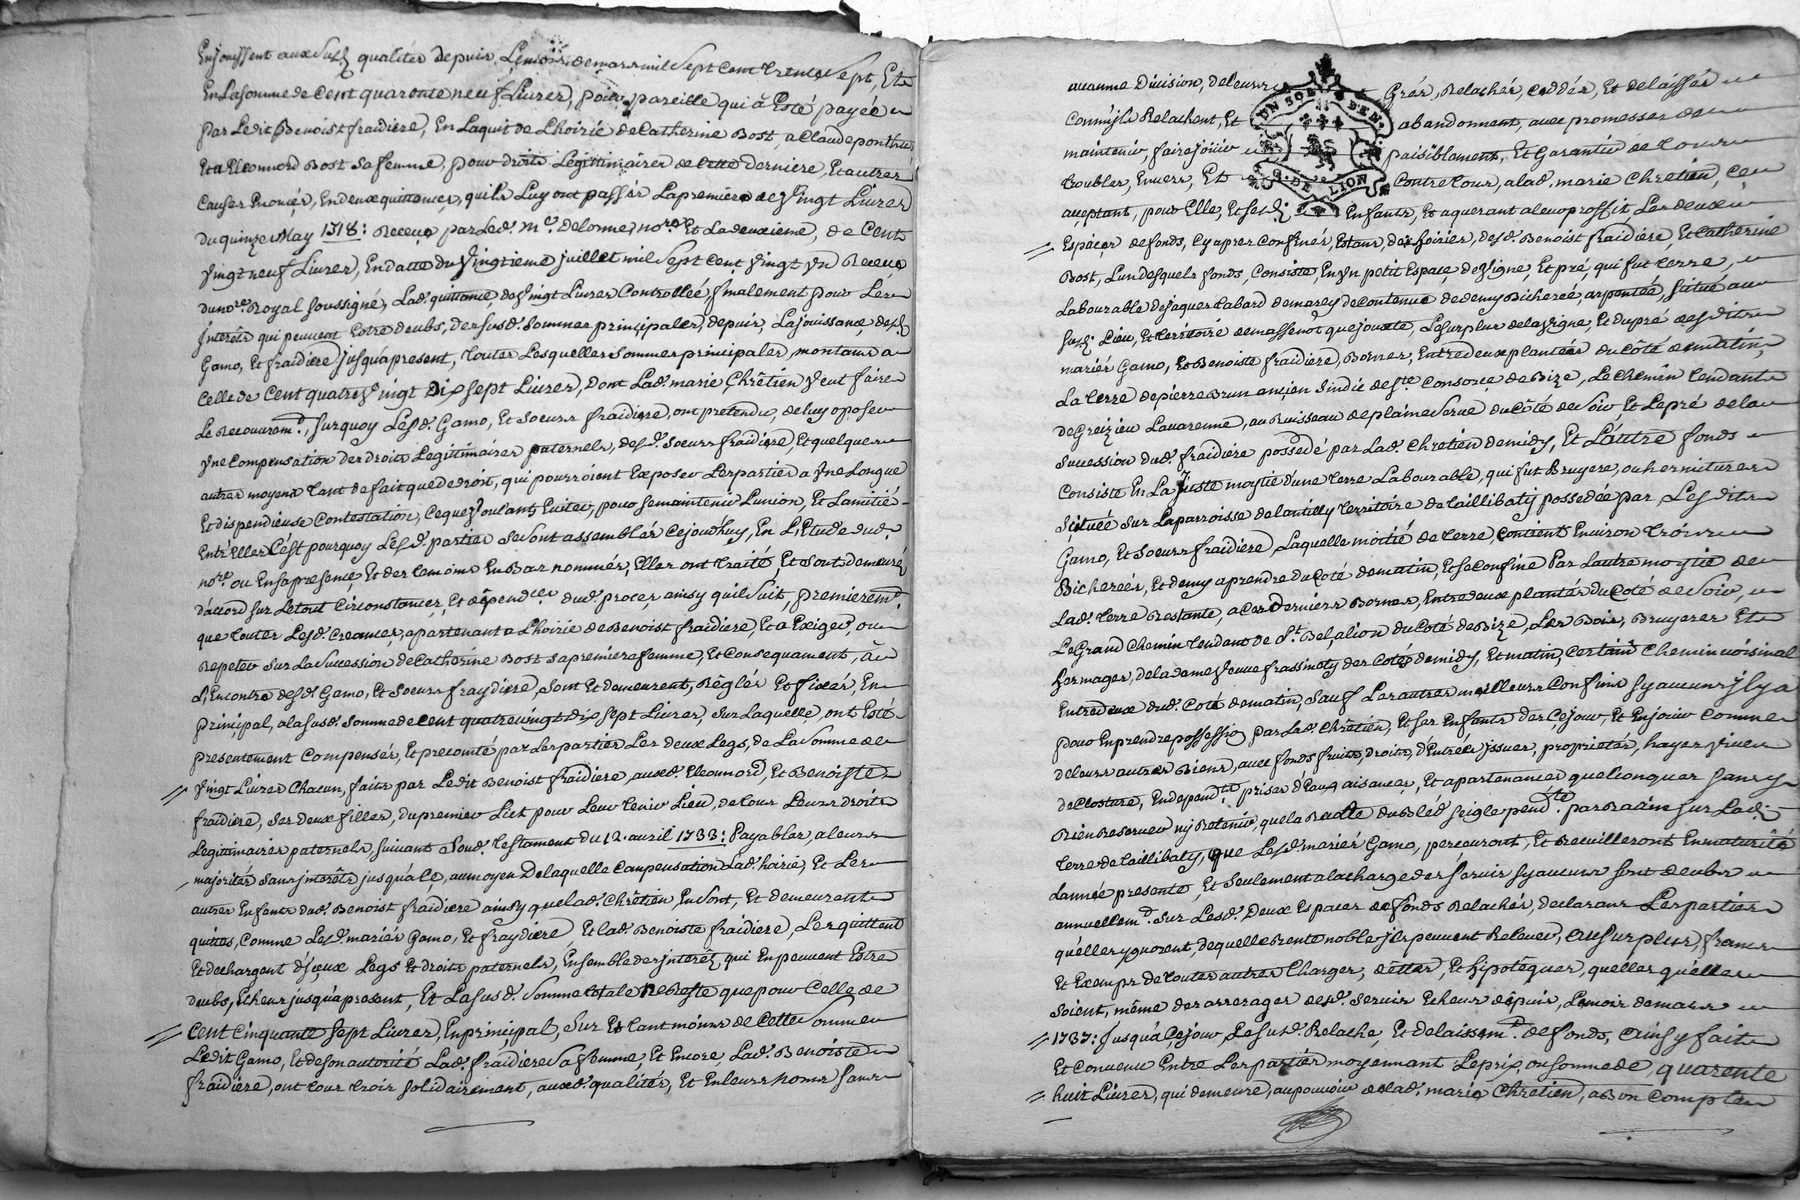 En jouissent aux susd. qualités depuis Le mois de mars mil sept cent trente sept, Et
En La somme de Cent quarante neuf Livres, pour pareille qui à Esté payée
par Ledit Benoist fraidiere, En Laquit de L'hoirie de Catherine Bost, a Claude
Et a Eleonnord Bost sa femme, pour droits Legitimaires de Cette derniere, Et autres
Causes Enoncés, En deux quittances, qu'ils Luy ont passés La premiere de Vingt Livres
du quinze May 1718: Receue par Led. Me. delorme nore. Et La deuxieme, de Cent
Vingt neuf Livres, En datte du Vingtieme juillet mil sept cent Vingt Un Receue
du nore. Royal soussigné, Lad. quittance de Vingt Livres Controllée, finalement pour Les
jnterêts qui peuvent Estre deubs, des susd. sommes principales, depuis La jouissance desd.
Gamo, Et fraidiere jusqu'a present, toutes Lesquelles sommes principales, montans a
Celle de Cent quatre Vingt Dix sept Livres, dont Lad. marie Chrêtien Veut faire
Le Recouvremt., surquoy Lesd. Gamo, Et soeurs fraidiere, ont pretendu, de luy oposer
Une Compensation des droits Legitimaires paternels, desd. soeurs fraidiere, Et quelques
autres moyens tant de fait que de droit, qui pourroient Exposer Les parties a Une Longue
Et dispendieuse Contestation, Ce que Voulant Eviter, pour se maintenir L'union, Et L'amitié
Entr'Elles C'est pourquoy Lesd. parties se sont assemblés Cejourd'huy, En L'Etude dud.
nore. ou En sa presence, Et des temoins En Bas nommés, Elles ont traité, Et sont demeuré
d'accord sur Le tout Circonstances, Et dépendces. dud. procez, ainsy qu'il suit, premieremt.
que toutes Lesd. Creances, apartenant a L'hoirie de Benoist fraidiere, Et a Exiger, ou
Repeter sur La succession de Catherine Bost sa premiere femme, Et Consequament, à
L'Encontre desd. Gamo, Et soeurs fraydiere, sont Et demeurent, Réglés Et fixés, En
principal, a la susd. somme de cent quatre vingt dix sept Livres, sur Laquelle, ont Esté
presentement Compensés, Et precomté par Les parties Les deux Legs, de La somme de
Vingt Livres Chacun, faits par Ledit Benoist fraidiere, auxd. Eleonnord, Et Benoiste
fraidiere, ses deux filles, du premier Liet pour Leur tenir Lieu, de tous Leurs droits
Legitimaires paternels, suivant Soud. testament du 12. avril 1733: Payables, a leurs
majorités sans jnterêts jusqu'à Ce, au moyen De laquelle Compensation Lad. hoirie, Et Les
autres Enfants dud. Benoist fraidiere ainsy que lad. Chrêtien En sont, Et demeurent
quittes, Comme Lesd. mariés Gamo, Et fraydiere, Et lad. Benoiste fraidiere, Les quittent
Et dechargent d'jceux Legs Et droits paternels, Ensemble des jnterêts, qui En peuvent Estre
deubs, Echeus jusqu'a present, Et La susd. somme totale ne Reste que pour Celle de
Cent Cinquante sept Livres, En principal, Sur Et tant moins de Cette somme
Ledit Gamo, Et de son autorité Lad. fraidiere sa femme, Et Encore Lad. Benoiste
fraidiere, ont tous trois solidairement, auxd. qualités, Et En leurs noms sans
aucunne Division, de Leurs Grés, Relachés, Ceddés, Et delaissés
Comm'jls Relachent, Et abandonnent, avec promesses de
maintenir, faire jouir paisiblement, Et Garantir de tous
troubles, Envers, Et Contre tous, a lad. marie Chretien, Cy
aceptant, pour Elle, Et sesd. Enfants, Et aquerant a leur proffit Les deux
Espaces de fonds, Cy apres Confinés Estans, des hoiries, desd. Benoist fraidiere, Et Catherine
Bost, L'un desquels fonds, Consiste, En Un petit Espace, de Vigne, Et pré, qui fut terre,
Labourable de jaques tabard de marey de Contenue de demy Bicherée, arpentée, situé au
susd. Lieu, Et territoire de massenot que jouxte, Le surplus de la Vigne, Et du pré desdits
mariés Gamo, Et Benoiste fraidiere, Bornes, Entre deux plantées du Côté de matin,
La terre de pierre Brun ancien Sindic de ste. Consorce de Bize, Le Chemin tendant
de Greizieu Lavarenne, au Ruisseau de plaine Serve du Côté de soir, Et Le pré de la
succession dud. fraidiere possedé par Lad. Chretien de midy, Et L'autre fonds
Consiste En La juste moytié d'une terre Labourable, qui fut Bruyere, ou hermitures
scituée sur La parroisse de Lantilly territoire de taillibaty possedée par Lesdits
Gamo, Et soeurs fraidiere, Laquelle moitié de terre, contient Environ trois
Bicherées, Et demy a prendre du Coté de matin, Et se confine Par L'autre moytié de
Lad. terre Restante, a Ces Derniers Bornes, Entre deux plantés du Coté de Soir,
Le Grand Chemin tendant de St. Bel, a lion du Coté de Bize, Les Bois, Bruyeres Et
hermages, de la dame Veuve frassinoty des Cotés de midy, Et matin, Certain Chemin voisinal
Entre deux dud. Coté de matin, Sauf Les autres meilleurs Confins sy aucuns jl y a
pour En prendre possession par Lad. Chrêtien, Et ses Enfants des Ce jour, Et En jouir Comme
de leurs autres Biens, avec fonds fruits, droits, d'Entrées jssues, proprietés, hayes Vives
de Closture, Endependces. prises d'Eaux aisances, Et apartenances quelconques sans y
Rien Reserver ny Retenir, que la Recolte du Bled seigle pendte. par Racine sur Lad.
terre de taillibaty, que Lesd. mariés Gamo, percevront, Et Recueilleront En maturité
L'année presente, Et seulement a la charge des servis sy aucuns sont deubs
annuellemt. sur Lesd. Deux Espaces de fonds Relachés, declarans Les parties
qu'elles ygnorent, de quelle Rente noble jls peuvent Relever, au surplus, francs
Et Exemps de toutes autres Charges, dettes, Et hipotêques, quelles qu'elles
soient, même des arrerages desd. servis Echeus depuis, Le mois de mars
1737: jusqu'a Ce jour, Le susd. Relache, Et delaissemt. de fonds, Ainsy fait
Et Convenu Entre Les parties moyennant Le prix, ou somme de quarente
huit Livres, qui demeure, au pouvoir de lad. marie Chretien, a Bon Compte
UN SOL
G. DE LION